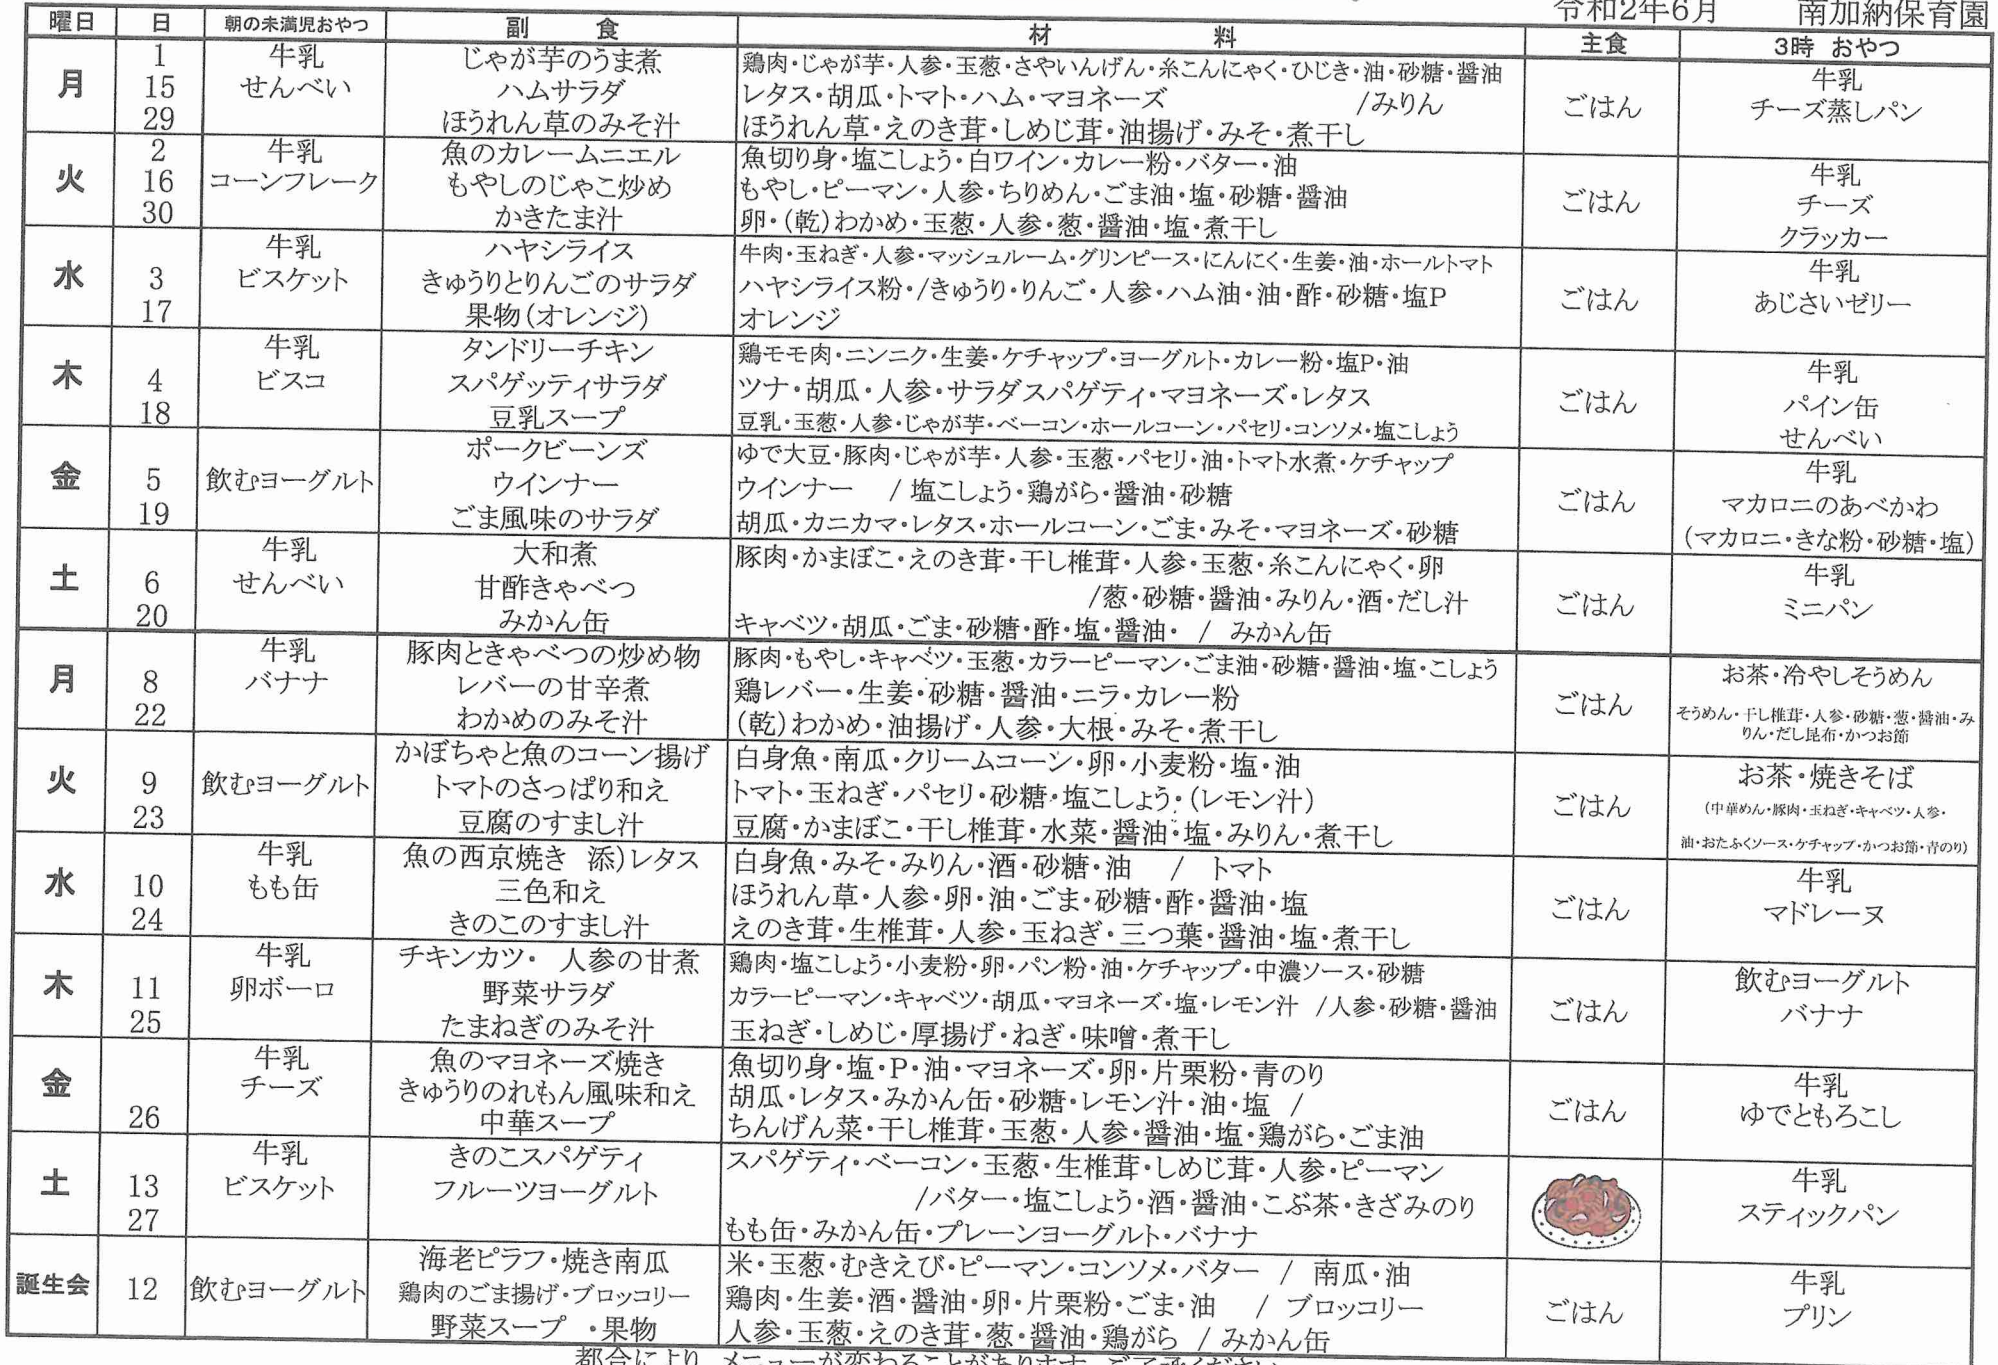 令和2年6月 南加納保育園
曜日 日 朝の未満児おやつ 副 食 材 料 主食 3時 おやつ
月
1
15
29
牛乳
せんべい
じゃが芋のうま煮
ハムサラダ
ほうれん草のみそ汁
鶏肉・じゃが芋・人参・玉葱・さやいんげん・糸こんにゃく・ひじき・油・砂糖・醤油
レタス・胡瓜・トマト・ハム・マヨネーズ /みりん
ほうれん草・えのき茸・しめじ茸・油揚げ・みそ・煮干し
ごはん
牛乳
チーズ蒸しパン
火
2
16
30
牛乳
コーンフレーク
魚のカレームニエル
もやしのじゃこ炒め
かきたま汁
魚切り身・塩こしょう・白ワイン・カレー粉・バター・油
もやし・ピーマン・人参・ちりめん・ごま油・塩・砂糖・醤油
卵・(乾)わかめ・玉葱・人参・葱・醤油・塩・煮干し
ごはん
牛乳
チーズ
クラッカー
水
3
17
牛乳
ビスケット
ハヤシライス
きゅうりとりんごのサラダ
果物(オレンジ)
牛肉・玉ねぎ・人参・マッシュルーム・グリンピース・にんにく・生姜・油・ホールトマト
ハヤシライス粉・/きゅうり・りんご・人参・ハム油・油・酢・砂糖・塩P
オレンジ
ごはん
牛乳
あじさいゼリー
木
4
18
牛乳
ビスコ
タンドリーチキン
スパゲッティサラダ
豆乳スープ
鶏モモ肉・ニンニク・生姜・ケチャップ・ヨーグルト・カレー粉・塩P・油
ツナ・胡瓜・人参・サラダスパゲティ・マヨネーズ・レタス
豆乳・玉葱・人参・じゃが芋・ベーコン・ホールコーン・パセリ・コンソメ・塩こしょう
ごはん
牛乳
パイン缶
せんべい
金
5
19
飲むヨーグルト
ポークビーンズ
ウインナー
ごま風味のサラダ
ゆで大豆・豚肉・じゃが芋・人参・玉葱・パセリ・油・トマト水煮・ケチャップ
ウインナー / 塩こしょう・鶏がら・醤油・砂糖
胡瓜・カニカマ・レタス・ホールコーン・ごま・みそ・マヨネーズ・砂糖
ごはん
牛乳
マカロニのあべかわ
(マカロニ・きな粉・砂糖・塩)
土
6
20
牛乳
せんべい
大和煮
甘酢きゃべつ
みかん缶
豚肉・かまぼこ・えのき茸・干し椎茸・人参・玉葱・糸こんにゃく・卵
/葱・砂糖・醤油・みりん・酒・だし汁
キャベツ・胡瓜・ごま・砂糖・酢・塩・醤油・ / みかん缶
ごはん
牛乳
ミニパン
月
8
22
牛乳
バナナ
豚肉ときゃべつの炒め物
レバーの甘辛煮
わかめのみそ汁
豚肉・もやし・キャベツ・玉葱・カラーピーマン・ごま油・砂糖・醤油・塩・こしょう
鶏レバー・生姜・砂糖・醤油・ニラ・カレー粉
(乾)わかめ・油揚げ・人参・大根・みそ・煮干し
ごはん
お茶・冷やしそうめん
そうめん・干し椎茸・人参・砂糖・葱・醤油・み
りん・だし昆布・かつお節
火
9
23
飲むヨーグルト
かぼちゃと魚のコーン揚げ
トマトのさっぱり和え
豆腐のすまし汁
白身魚・南瓜・クリームコーン・卵・小麦粉・塩・油
トマト・玉ねぎ・パセリ・砂糖・塩こしょう・(レモン汁)
豆腐・かまぼこ・干し椎茸・水菜・醤油・塩・みりん・煮干し
ごはん
お茶・焼きそば
(中華めん・豚肉・玉ねぎ・キャベツ・人参・
油・おたふくソース・ケチャップ・かつお節・青のり)
水
10
24
牛乳
もも缶
魚の西京焼き 添)レタス
三色和え
きのこのすまし汁
白身魚・みそ・みりん・酒・砂糖・油 / トマト
ほうれん草・人参・卵・油・ごま・砂糖・酢・醤油・塩
えのき茸・生椎茸・人参・玉ねぎ・三つ葉・醤油・塩・煮干し
ごはん
牛乳
マドレーヌ
木
11
25
牛乳
卵ボーロ
チキンカツ・ 人参の甘煮
野菜サラダ
たまねぎのみそ汁
鶏肉・塩こしょう・小麦粉・卵・パン粉・油・ケチャップ・中濃ソース・砂糖
カラーピーマン・キャベツ・胡瓜・マヨネーズ・塩・レモン汁 /人参・砂糖・醤油
玉ねぎ・しめじ・厚揚げ・ねぎ・味噌・煮干し
ごはん
飲むヨーグルト
バナナ
金
26
牛乳
チーズ
魚のマヨネーズ焼き
きゅうりのれもん風味和え
中華スープ
魚切り身・塩・P・油・マヨネーズ・卵・片栗粉・青のり
胡瓜・レタス・みかん缶・砂糖・レモン汁・油・塩 /
ちんげん菜・干し椎茸・玉葱・人参・醤油・塩・鶏がら・ごま油
ごはん
牛乳
ゆでともろこし
土
13
27
牛乳
ビスケット
きのこスパゲティ
フルーツヨーグルト
スパゲティ・ベーコン・玉葱・生椎茸・しめじ茸・人参・ピーマン
/バター・塩こしょう・酒・醤油・こぶ茶・きざみのり
もも缶・みかん缶・プレーンヨーグルト・バナナ
牛乳
スティックパン
誕生会
12
飲むヨーグルト
海老ピラフ・焼き南瓜
鶏肉のごま揚げ・ブロッコリー
野菜スープ ・果物
米・玉葱・むきえび・ピーマン・コンソメ・バター / 南瓜・油
鶏肉・生姜・酒・醤油・卵・片栗粉・ごま・油 / ブロッコリー
人参・玉葱・えのき茸・葱・醤油・鶏がら / みかん缶
ごはん
牛乳
プリン
都合により、メニューが変わることがあります。ご了承ください